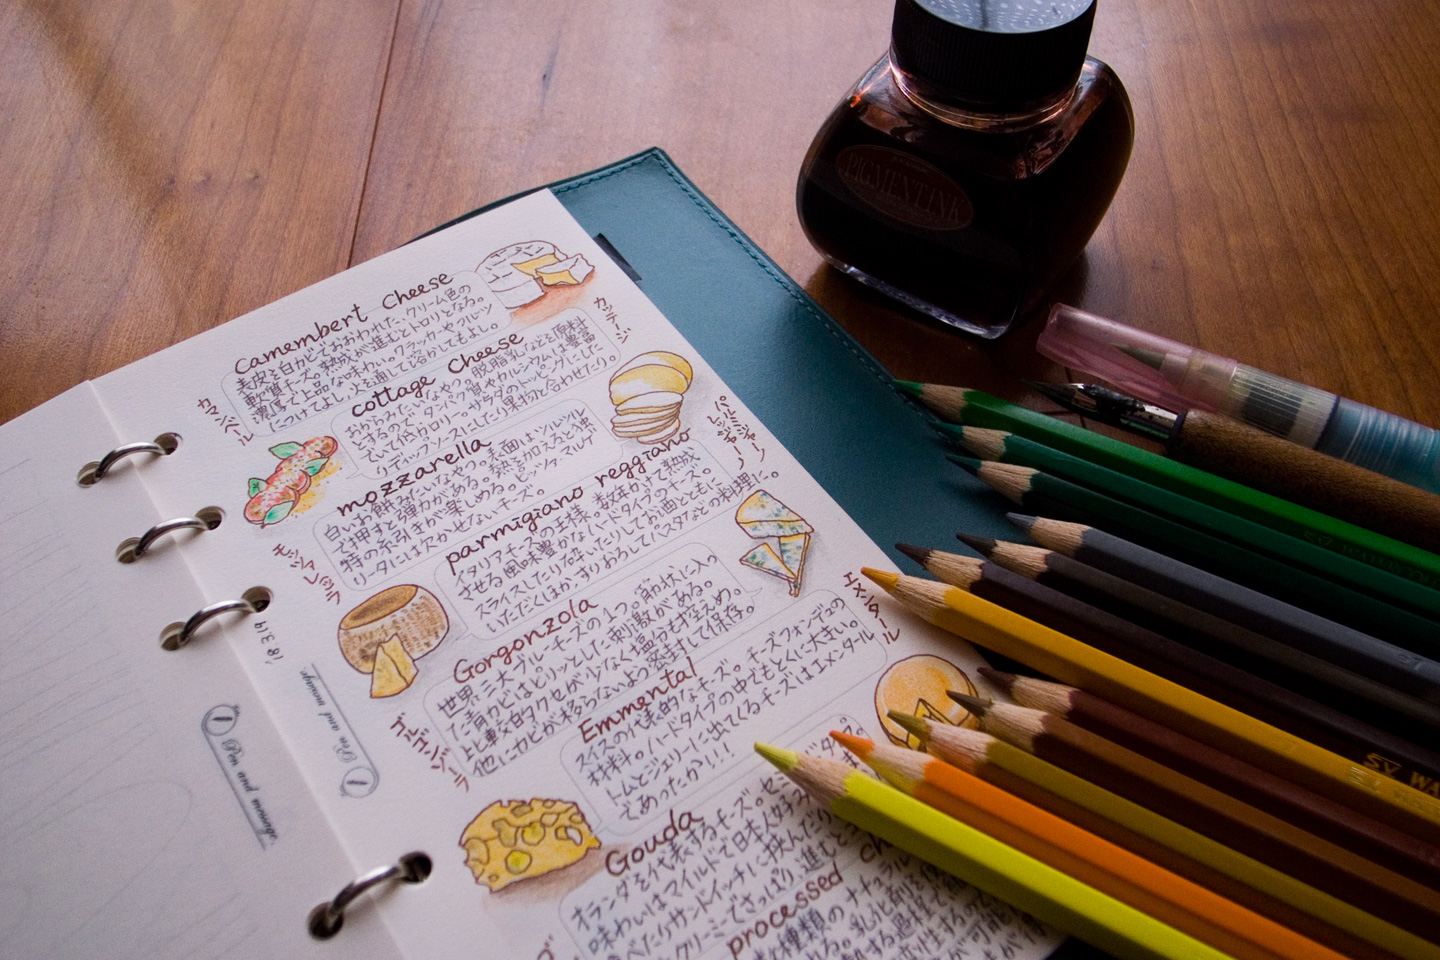 PIGMENT INK
camembert cheese
カマンベール
表皮を白カビでおおわれた、クリーム色の
軟質チーズ。熟成が進むとトロリとなる。
濃厚で上品な味わい。クラッカーやフルーツ
につけてよし、火を通して溶かしてもよし。
cottage cheese
カッテージ
おからみたいなやつ。脱脂乳などを原料
とするので、タンパク質やカルシウムは豊富
でいて低カロリー。サラダのトッピングにした
りディップソースにしたり果物と合わせたり。
mozzarella
モッツァレッラ
白いお餅みたいなやつ。表面はツルツル
で押すと弾力がある。熱を加えると独
特の糸引きが楽しめる。ピッツァ・マルゲ
リータには欠かせないチーズ。
parmigiano reggiano
パルミジャーノレッジャーノ
イタリアチーズの王様。数年かけて熟成
させる風味豊かなハードタイプのチーズ。
スライスしたり砕いたりしてお酒とともに
いただくほか、すりおろしてパスタなどの料理に。
Gorgonzola
ゴルゴンゾーラ
世界三大ブルーチーズの1つ。筋状に入っ
た青カビはピリッとした刺激がある。
比較的クセが少なく塩分も控えめ。
他にカビが移らないよう密封して保存。
Emmental
エメンタール
スイスの代表的なチーズ。チーズフォンデュの
材料。ハードタイプの中でもとくに大きい。
トムとジェリーに出てくるチーズはエメンタール
であったか!!!
Gouda
オランダを代表するチーズ。セミ
味わいはマイルドで日本人好み
べたりサンドイッチに挟んだり
クリーミーでさっぱり、進むとコ
processed
種類のナチュラル
る。乳化剤を
'18.3.19
Pen and message.
Pen and message.